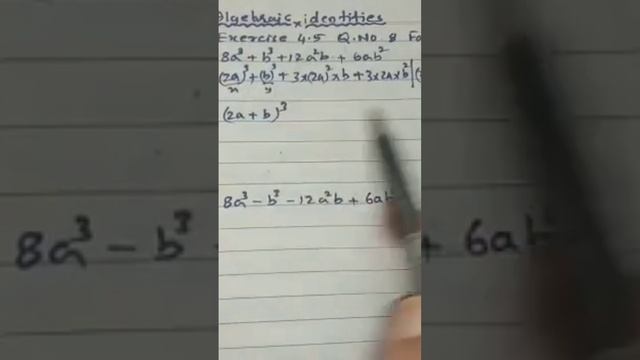 Algebraic identities
Exercise 4.5 Q.No 8
8a³ + b³ + 12a²b + 6ab²
(2a)³ + (b)³ + 3×(2a)²×b + 3×2a×b²
x y
(2a + b)³
8a³ - b³ - 12a²b + 6ab
8a³ - b³
+ 6ab